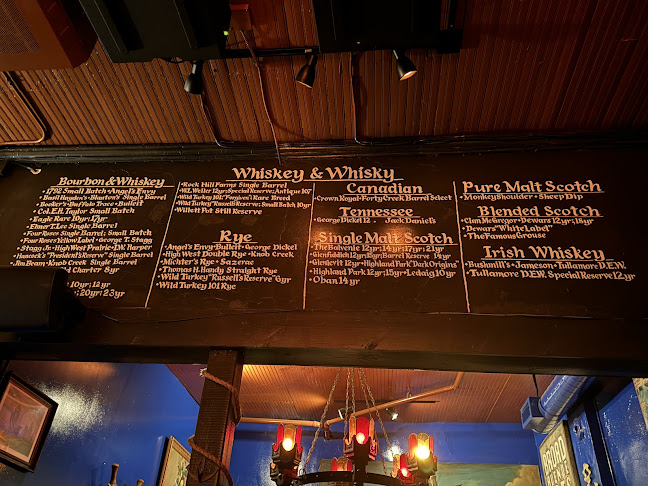 Whiskey & Whisky
Bourbon & Whiskey
•1792 Small Batch •Angel's Envy
•Basil Hayden's •Blanton's Single Barrel
•Booker's •Buffalo Trace •Bulleit
•Col. E.H. Taylor Small Batch
•Eagle Rare 10yr, 17yr
•Elmer T. Lee Single Barrel
•Four Roses Single Barrel, Small Batch
•Four Roses Yellow Label •George T. Stagg
•Stagg Jr. •High West Prairie •I.W. Harper
•Hancock's "President's Reserve" Single Barrel
•Jim Beam •Knob Creek Single Barrel
Charter 8yr
10yr, 12yr
20yr, 23yr
•Rock Hill Farms Single Barrel
•W.L. Weller 12yr, Special Reserve, Antique 107
•Wild Turkey 101 "Forgiven" Rare Breed
•Wild Turkey "Russell's Reserve" Small Batch 10yr
•Willett Pot Still Reserve
Rye
•Angel's Envy •Bulleit •George Dickel
•High West Double Rye •Knob Creek
•Michter's Rye •Sazerac
•Thomas H. Handy Straight Rye
•Wild Turkey "Russell's Reserve" 6yr
•Wild Turkey 101 Rye
Canadian
Crown Royal •Forty Creek Barrel Select
Tennessee
George Dickel 12 • Jack Daniel's
Single Malt Scotch
•The Balvenie 12yr, 14yr, 17yr, 21yr
•Glenfiddich 12yr, 15yr, Barrel Reserve 14yr
•Glenlivit 12yr •Highland Park "Dark Origins"
•Highland Park 12yr, 15yr •Ledaig 10yr
•Oban 14yr
Pure Malt Scotch
•Monkey Shoulder •Sheep Dip
Blended Scotch
•Clan McGregor •Dewars 12yr, 18yr
•Dewars "White Label"
•The Famous Grouse
Irish Whiskey
•Bushmill's •Jameson •Tullamore D.E.W.
•Tullamore D.E.W. Special Reserve 12yr